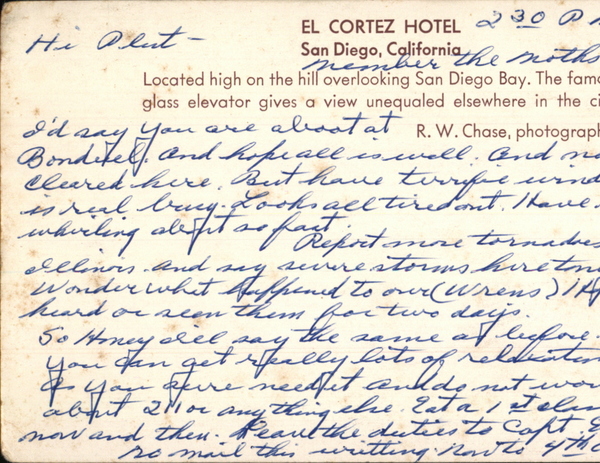 EL CORTEZ HOTEL 2 30 P
Hi Plut -
San Diego, California
member the moths
Located high on the hill overlooking San Diego Bay. The fam
glass elevator gives a view unequaled elsewhere in the ci
I'd say you are about at
R. W. Chase, photograph
and hope all is well. and
cleared here. But have terrific wind
is real busy. Looks all tired out. I have
whirling about so fast.
Report more tornadoes
Illinois. and say severe storms here
Wonder what happened to our (Wrens)
heard or seen them for two days.
So Honey I'll say the same as before.
you can get really lots of relaxation
as you sure need it and do not
about 211 or anything else. Eat a 1st
now and then. Leave the duties to Capt.
so mail this writting. Now to 4th